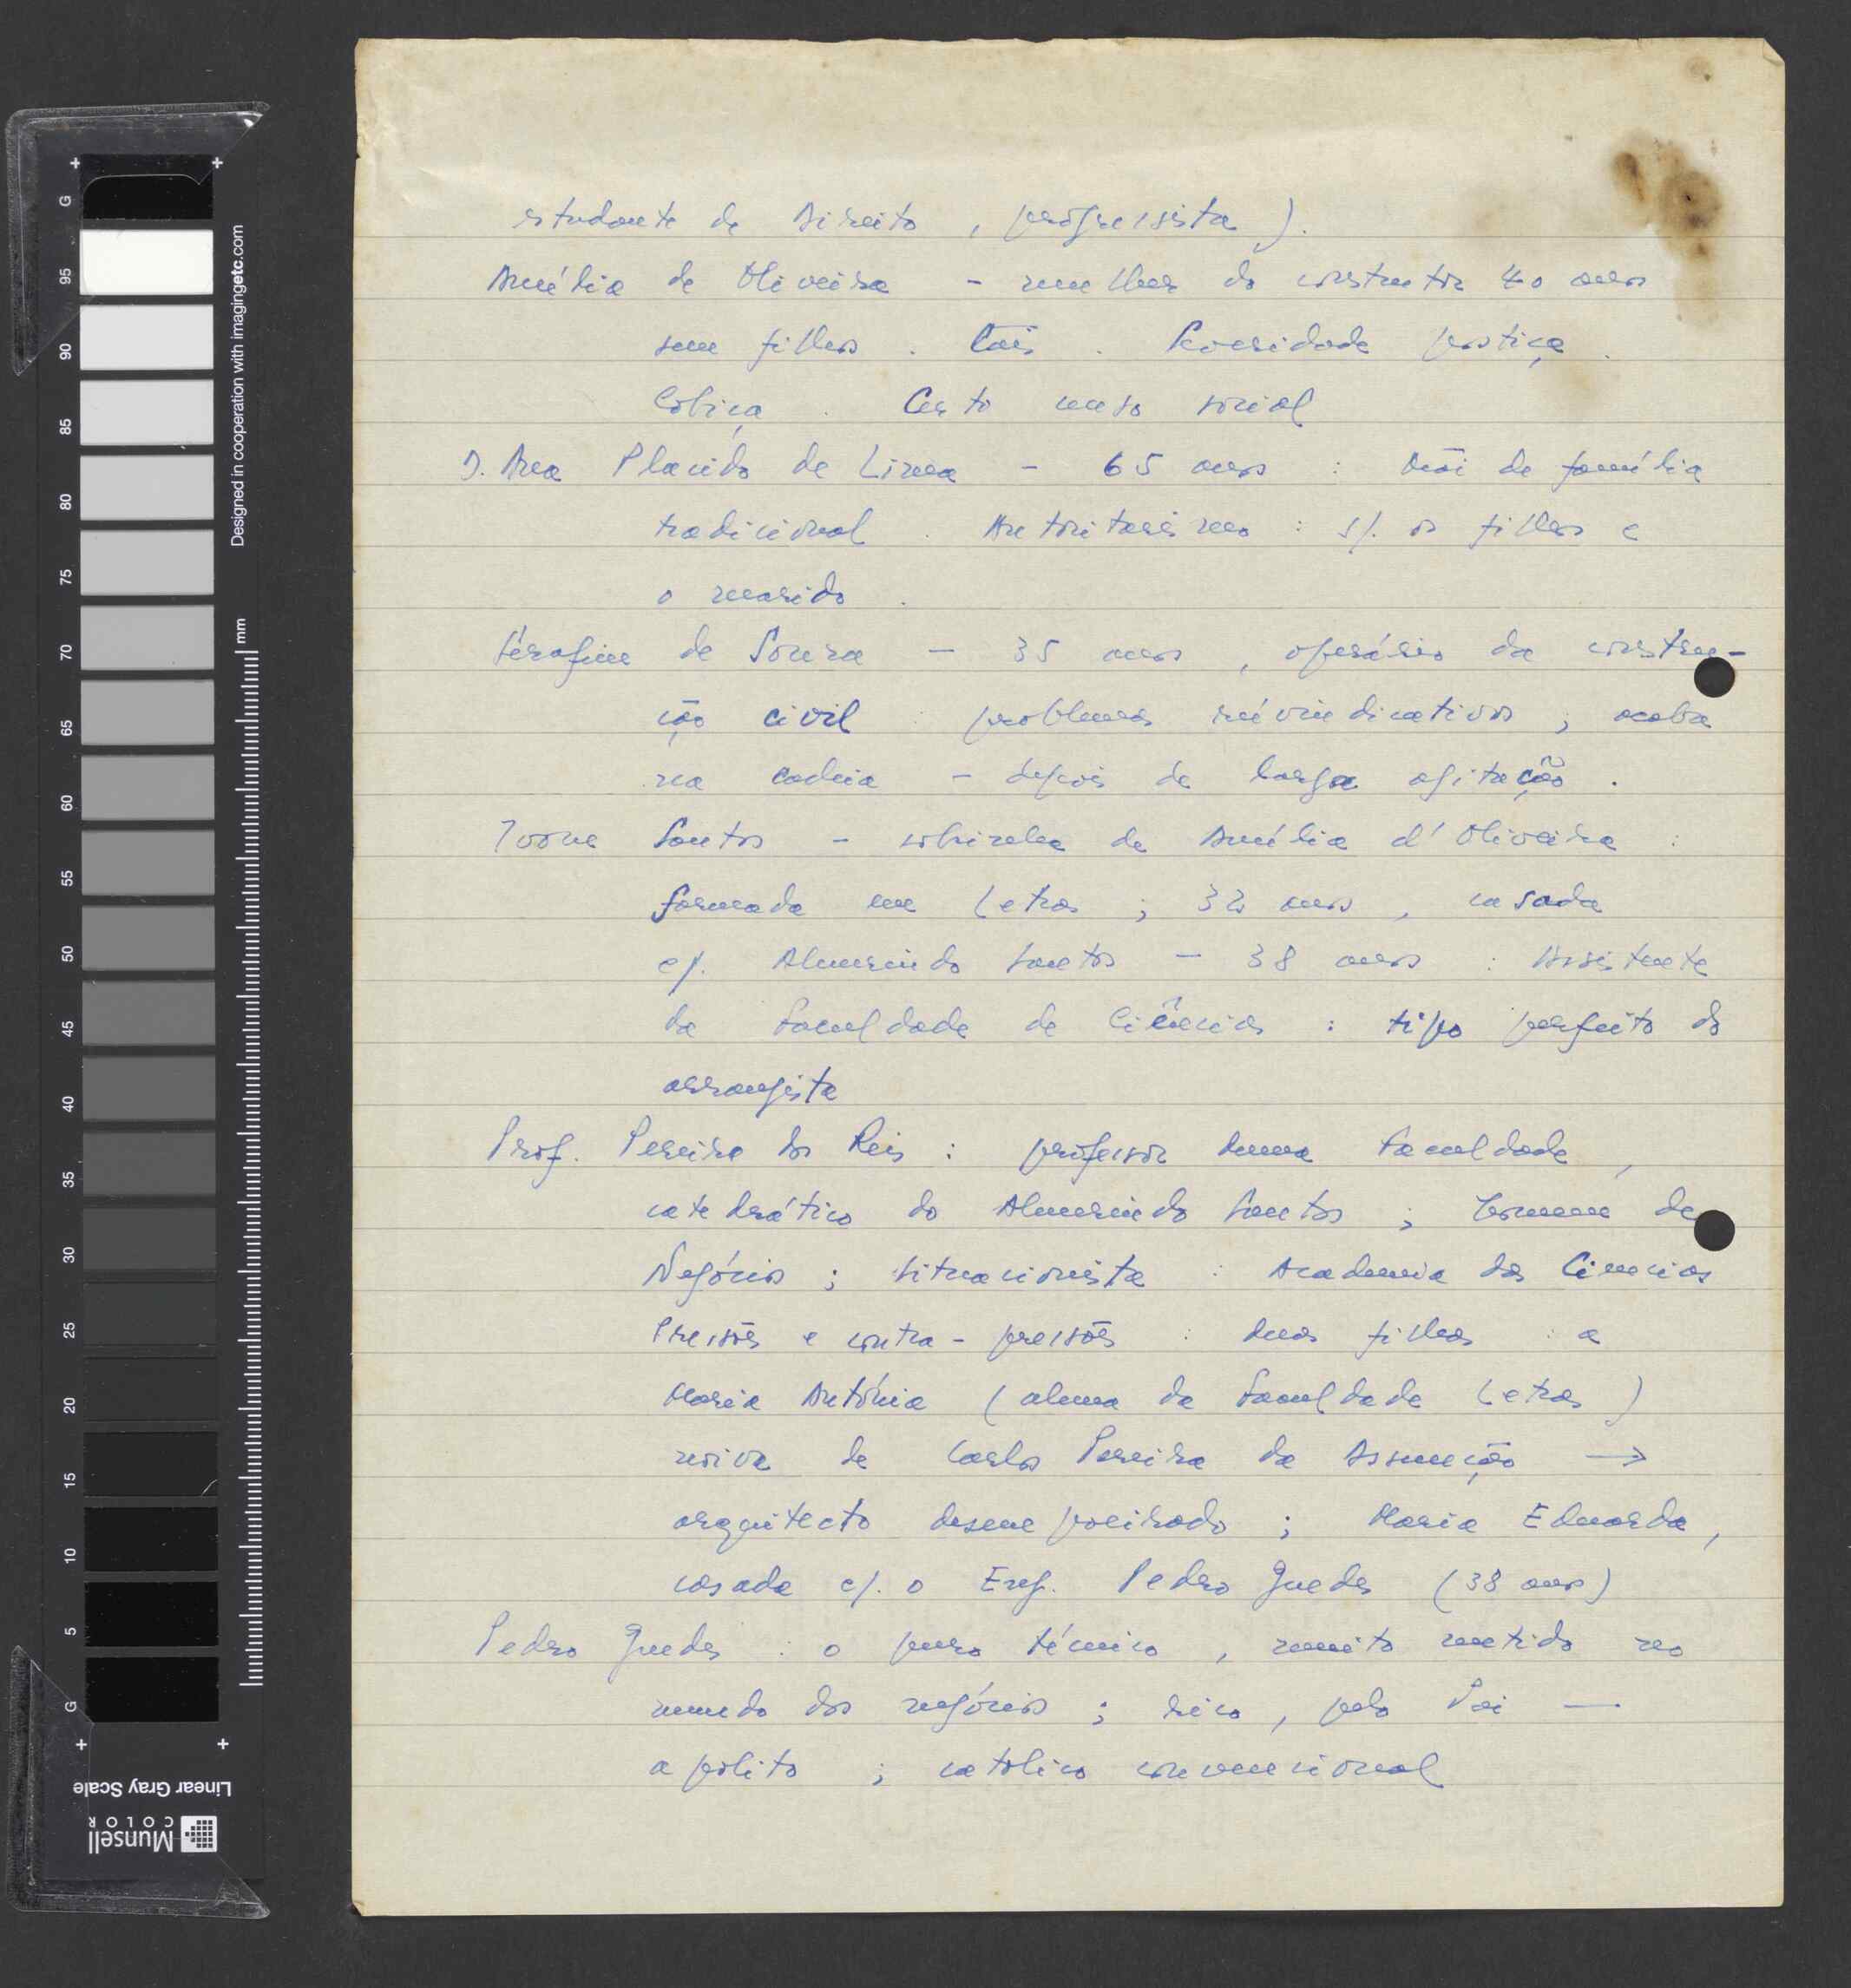 estudante de Direito, progressista).
Amélia de Oliveira - mulher do construtor 40 anos
sem filhos. Cais. Severidade postiça.
Cobiça. Certo senso social
D. Ana Plácido de Lima - 65 anos: mãi de família
tradicional. Autoritarismo: s/. os filhos e
o marido.
Serafim de Sousa - 35 anos, operário da constru-
ção civil: problemas reivindicativos; acaba
na cadeia - depois de larga agitação.
Ivone Santos - sobrinha de Amélia d'Oliveira:
formada em Letras; 32 anos, casada
c/. Almerindo Santos - 38 anos: Assistente
da Faculdade de Ciências: tipo perfeito do
arrangista
Prof. Pereira dos Reis: professor duma Faculdade,
catedrático do Almerindo Santos; homem de
Negócios; situacionista: Academia das Ciencias
Pressões e contra-pressões: duas filhas: a
Maria António (aluna da Faculdade Letras)
noiva de Carlos Pereira da Assunção →
arquitecto desempoeirado; Maria Eduarda,
casada c/. o Eng. Pedro Guedes (38 anos)
Pedro Guedes: o puro técnico, muito metido no
mundo dos negócios; rico, pelo Pai —
apolito; catolico convencional
Designed in cooperation with imagingetc.com
mm
G 95 90 85 80 75 70 65 60 55 50 45 40 35 30 25 20 15 10 5 G
Linear Gray Scale
Munsell
COLOR